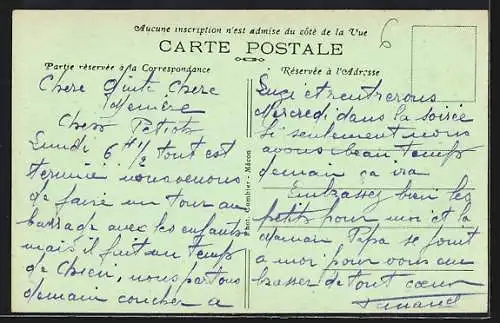 Aucune inscription n'est admise du côté de la Vue
CARTE POSTALE
Partie réservée à la Correspondance
Réservée à l'Adresse
6
Chere chere
Chers Petiots
Lundi 6 h 1/2 tout est
terminé nous venons
de faire un tour au
barrage avec les enfants
mais il fait un temps
de chien, nous partons
demain coucher a
Phot. Combier - Mâcon
et rentrerons
Mercredi dans la soirée
Si seulement nous
avons beau temps
demain ça ira
Embrassez bien les
petits pour moi et la
Papa se joint
a moi pour vous em
brasser de tout cœur
Fernand